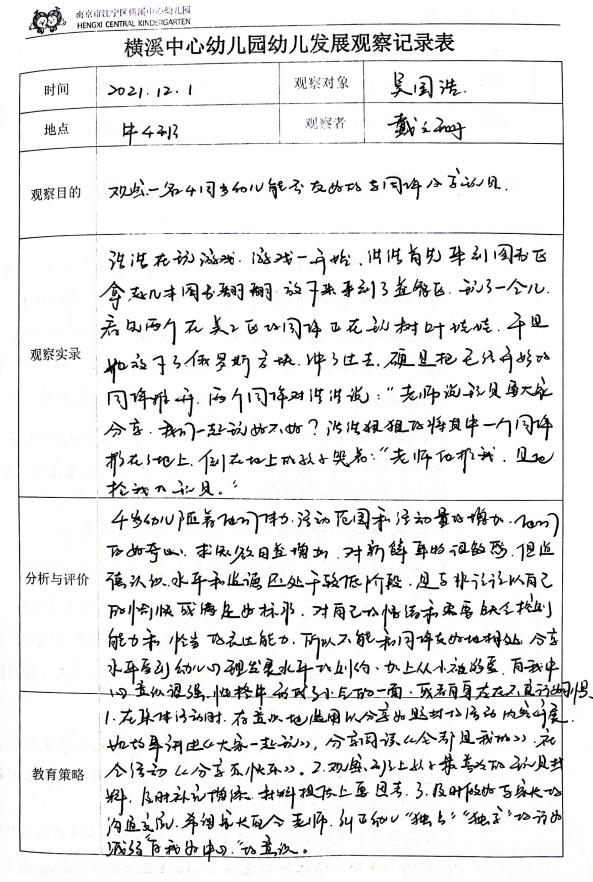 南京市江宁区横溪中心幼儿园
HENGXI CENTRAL KINDERGARTEN
横溪中心幼儿园幼儿发展观察记录表
时间 2021.12.1 观察对象 吴国浩.
地点 中4班 观察者 戴
观察目的 观察一名4周岁幼儿能否友好的与同伴分享玩具.
观察实录
浩浩在玩游戏.游戏一开始,浩浩首先来到图书区
拿起几本图书翻翻.放下来来到了益智区.玩了一会儿.
看见两个在美工区的同伴正在玩树叶娃娃.于是
他放下了俄罗斯方块.冲了过去.硬是把已经开始的
同伴推开.两个同伴对浩浩说:“老师说玩具要大家
分享.我们一起玩好不好?浩浩狠狠的将其中一个同伴
推在了地上.倒在地上的孩子哭着:“老师他推我.还
抢我的玩具。”
分析与评价
4岁幼儿随着他们体力.活动范围和活动量的增加.他们
的好奇心.求知欲日益增加.对新鲜事物很敏感.但道
德认识.水平和道德还处于较低阶段.是与非往往以自己
的愉快或满足为标准.对自己的情绪和需要缺乏控制
能力和恰当的表达能力.所以不能和同伴友好地相处.分享
水平受到幼儿心理发展水平的制约.加上从小被溺爱.自我中
心意识过强.性格中形成了小气的一面.或者自身存在不良行为习惯.
教育策略
1.在集体活动时.有意识地选用以分享为题材的活动内容开展.
如故事讲述《大家一起玩》,分享阅读《全都是我的》.社
会活动《分享真快乐》。2.观察
料,及时补充增添.材料投放上要思考.3.及时做好与家长的
沟通交流.希望家长配合老师.纠正幼儿“独占”“独享”的行为
减弱“自我为中心”的意识。